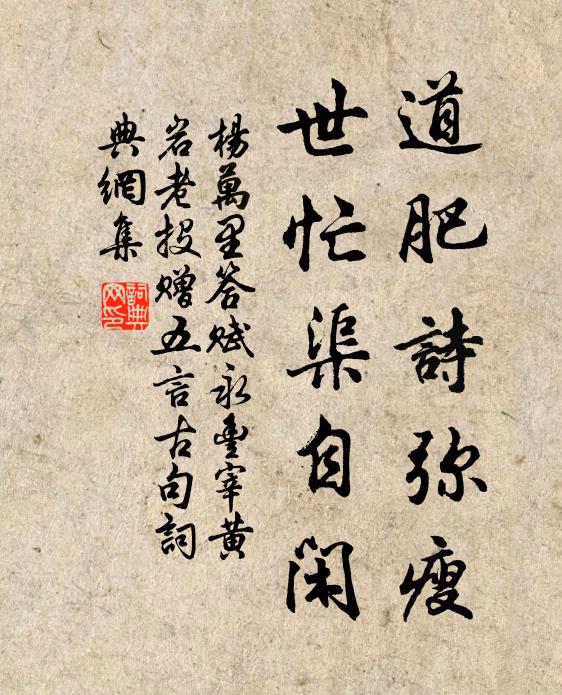 道肥詩弥瘦
世忙渠自閑
楊萬里答賦永豐宰黃
岩老投贈五言古句詞
典網集
詞典网印